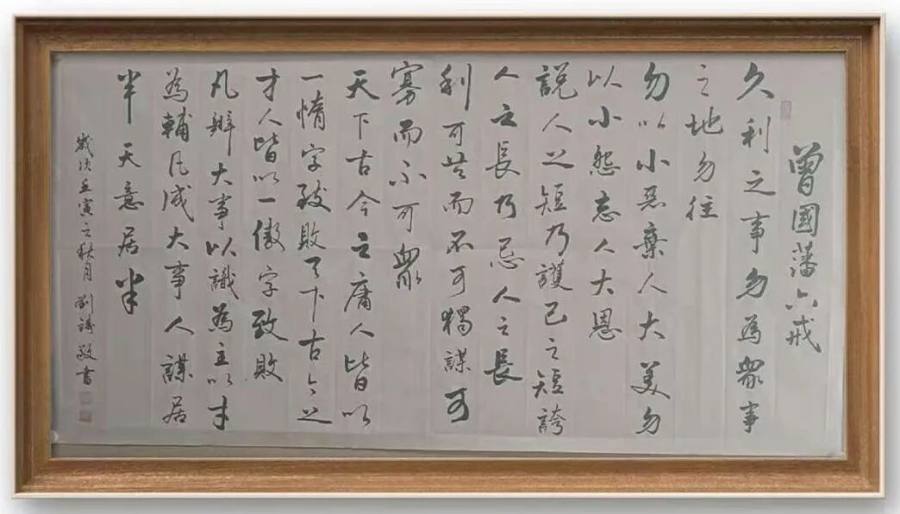 曾國藩六戒
久利之事勿為眾事
之地勿往
勿以小惡棄人大美勿
以小怨忘人大恩
說人之短乃護己之短誇
人之長乃忌人之長
利可共而不可獨謀可
寡而不可眾
天下古今之庸人皆以
一惰字致敗天下古今之
才人皆以一傲字致敗
凡辦大事以識為主以才
為輔凡成大事人謀居
半天意居半
歲次壬寅之秋月 劉 敬書